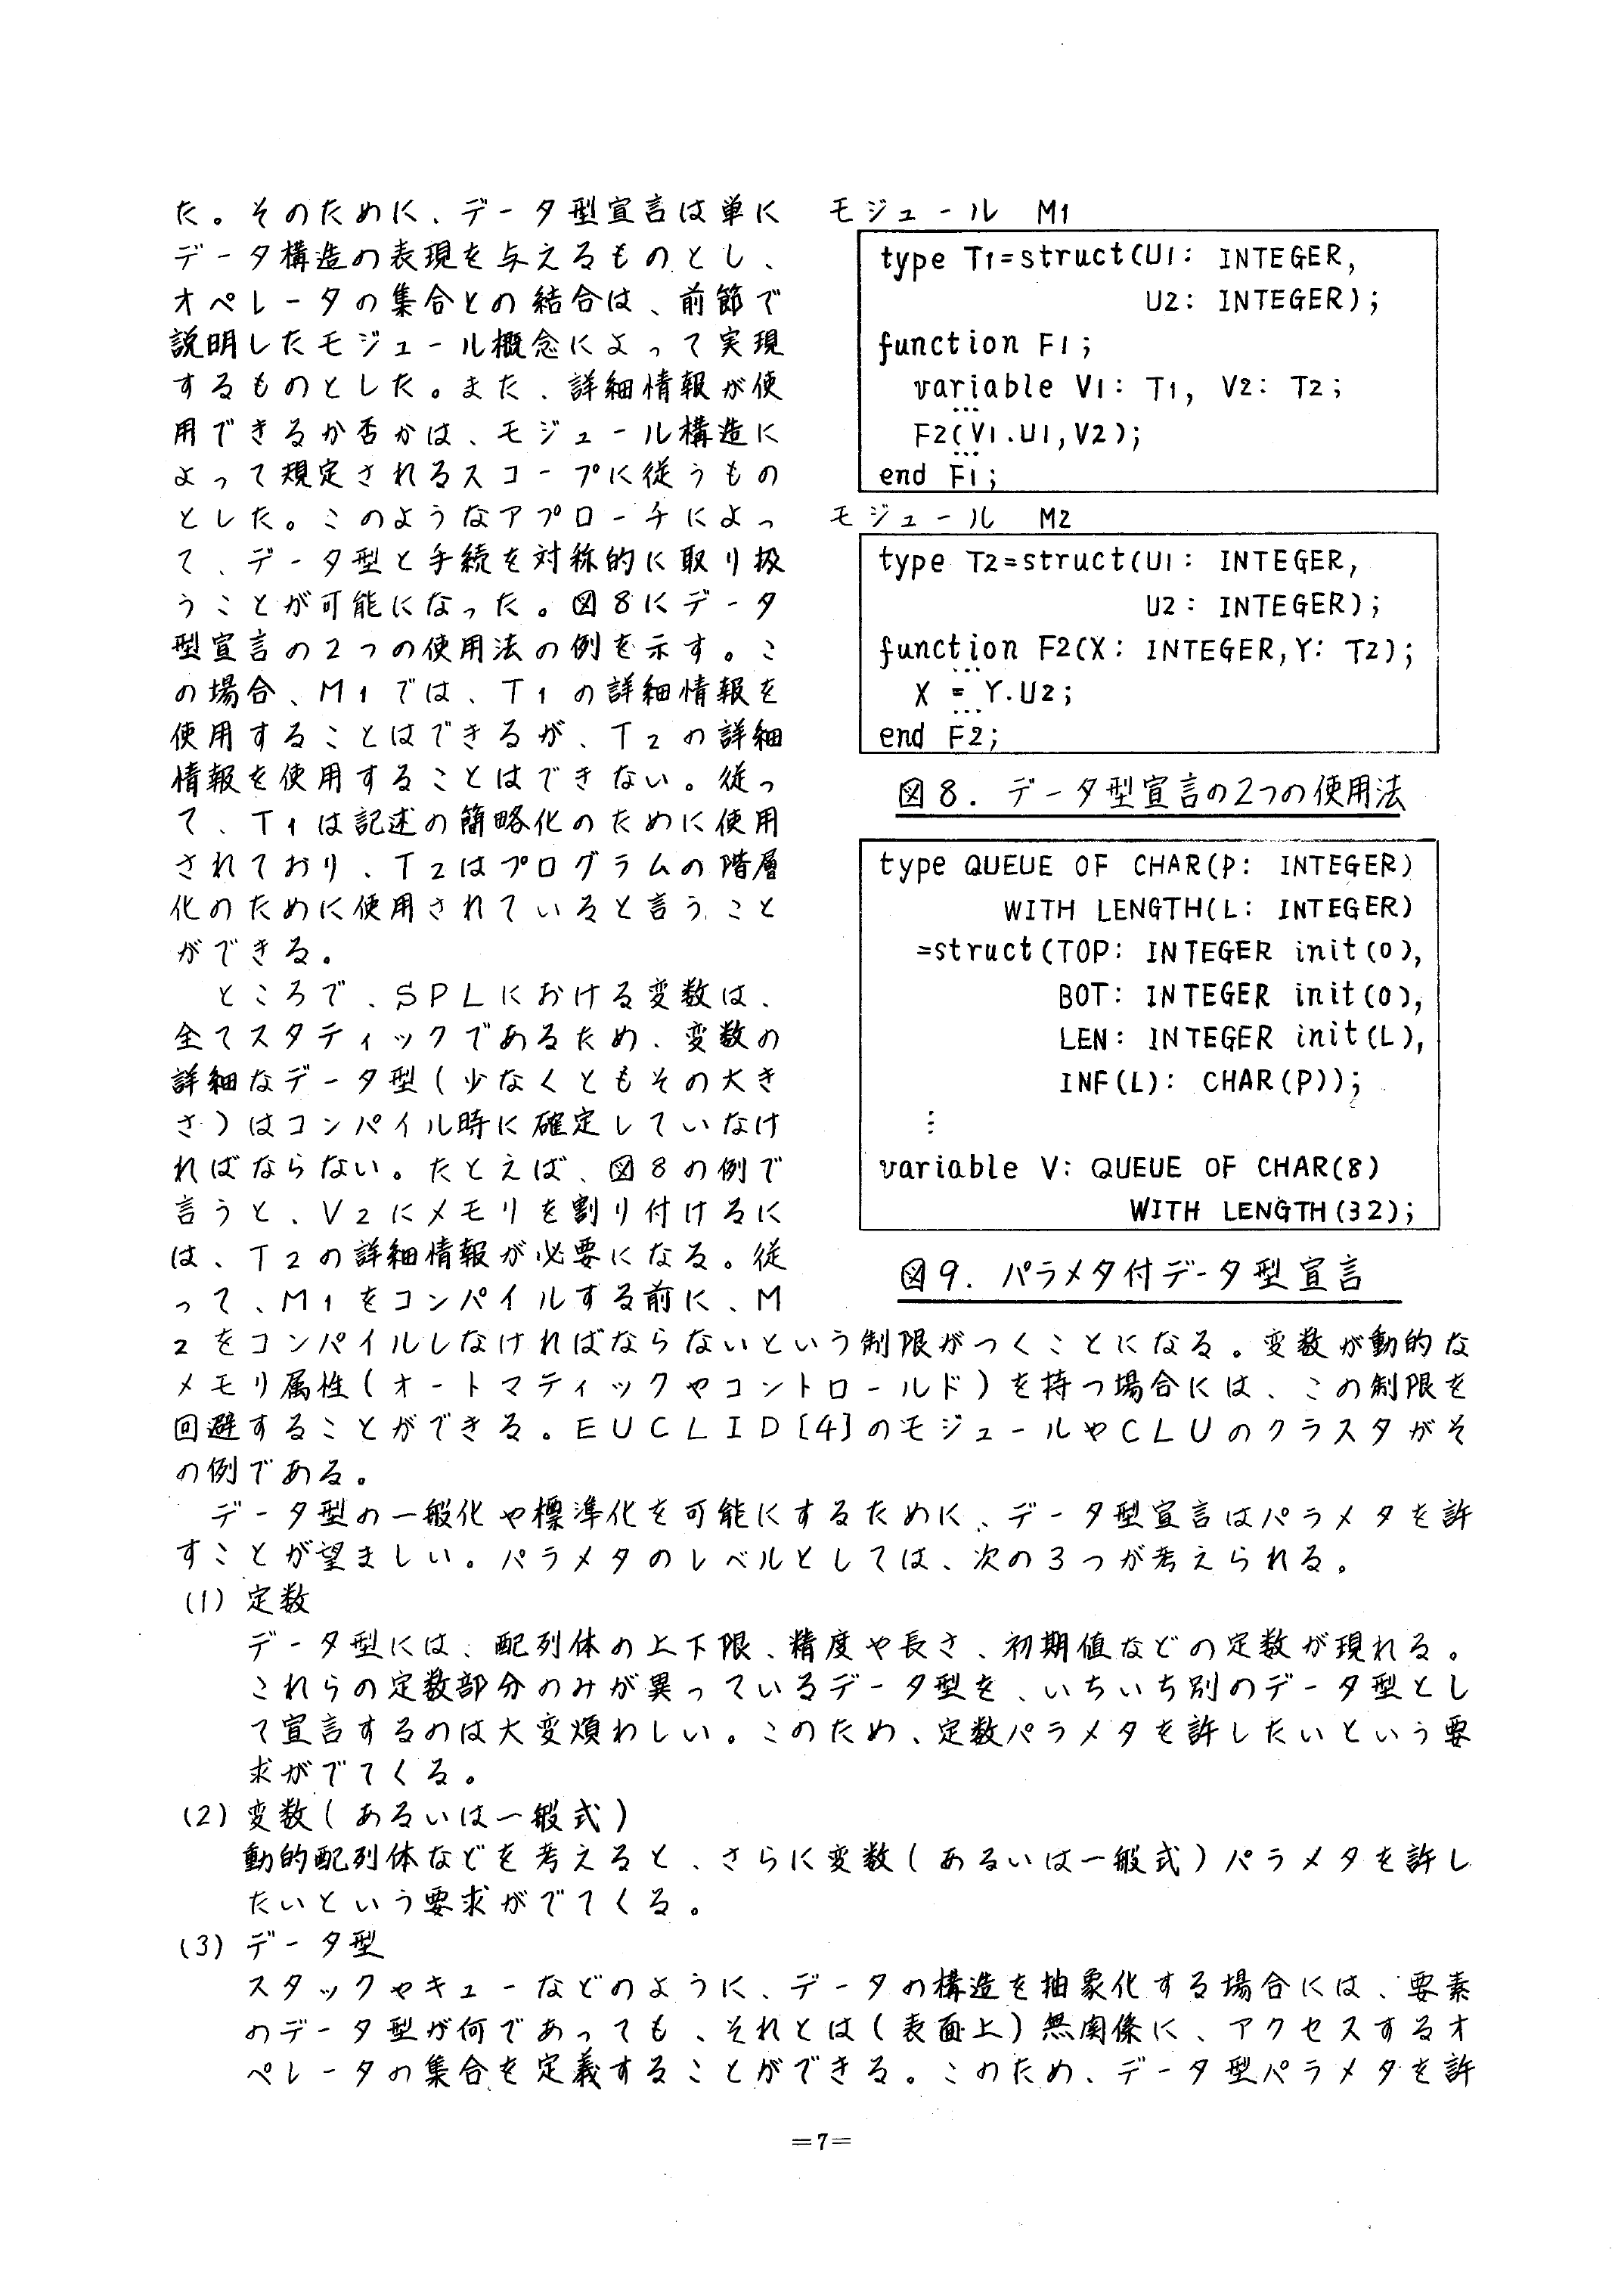 た。そのために、データ型宣言は単に
データ構造の表現を与えるものとし、
オペレータの集合との結合は、前節で
説明したモジュール概念によって実現
するものとした。また、詳細情報が使
用できるか否かは、モジュール構造に
よって規定されるスコープに従うもの
とした。このようなアプローチによっ
て、データ型と手続を対称的に取り扱
うことが可能になった。図8にデータ
型宣言の2つの使用法の例を示す。こ
の場合、M1では、T1の詳細情報を
使用することはできるが、T2の詳細
情報を使用することはできない。従っ
て、T1は記述の簡略化のために使用
されており、T2はプログラムの階層
化のために使用されていると言うこと
ができる。
ところで、SPLにおける変数は、
全てスタティックであるため、変数の
詳細なデータ型(少なくともその大き
さ)はコンパイル時に確定していなけ
ればならない。たとえば、図8の例で
言うと、V2にメモリを割り付けるに
は、T2の詳細情報が必要になる。従
って、M1をコンパイルする前に、M
モジュール M1
type T1=struct(U1: INTEGER,
U2: INTEGER);
function F1;
variable V1: T1, V2: T2;
...
F2(V1.U1,V2);
...
end F1;
モジュール M2
type T2=struct(U1: INTEGER,
U2: INTEGER);
function F2(X: INTEGER,Y: T2);
...
X = Y.U2;
...
end F2;
図8. データ型宣言の2つの使用法
type QUEUE OF CHAR(P: INTEGER)
WITH LENGTH(L: INTEGER)
=struct(TOP: INTEGER init(0),
BOT: INTEGER init(0),
LEN: INTEGER init(L),
INF(L): CHAR(P));
⋮
variable V: QUEUE OF CHAR(8)
WITH LENGTH(32);
図9. パラメタ付データ型宣言
2をコンパイルしなければならないという制限がつくことになる。変数が動的な
メモリ属性(オートマティックやコントロールド)を持つ場合には、この制限を
回避することができる。EUCLID[4]のモジュールやCLUのクラスタがそ
の例である。
データ型の一般化や標準化を可能にするために、データ型宣言はパラメタを許
すことが望ましい。パラメタのレベルとしては、次の3つが考えられる。
(1) 定数
データ型には、配列体の上下限、精度や長さ、初期値などの定数が現れる。
これらの定数部分のみが異っているデータ型を、いちいち別のデータ型とし
て宣言するのは大変煩わしい。このため、定数パラメタを許したいという要
求がでてくる。
(2) 変数(あるいは一般式)
動的配列体などを考えると、さらに変数(あるいは一般式)パラメタを許し
たいという要求がでてくる。
(3) データ型
スタックやキューなどのように、データの構造を抽象化する場合には、要素
のデータ型が何であっても、それとは(表面上)無関係に、アクセスするオ
ペレータの集合を定義することができる。このため、データ型パラメタを許
=7=